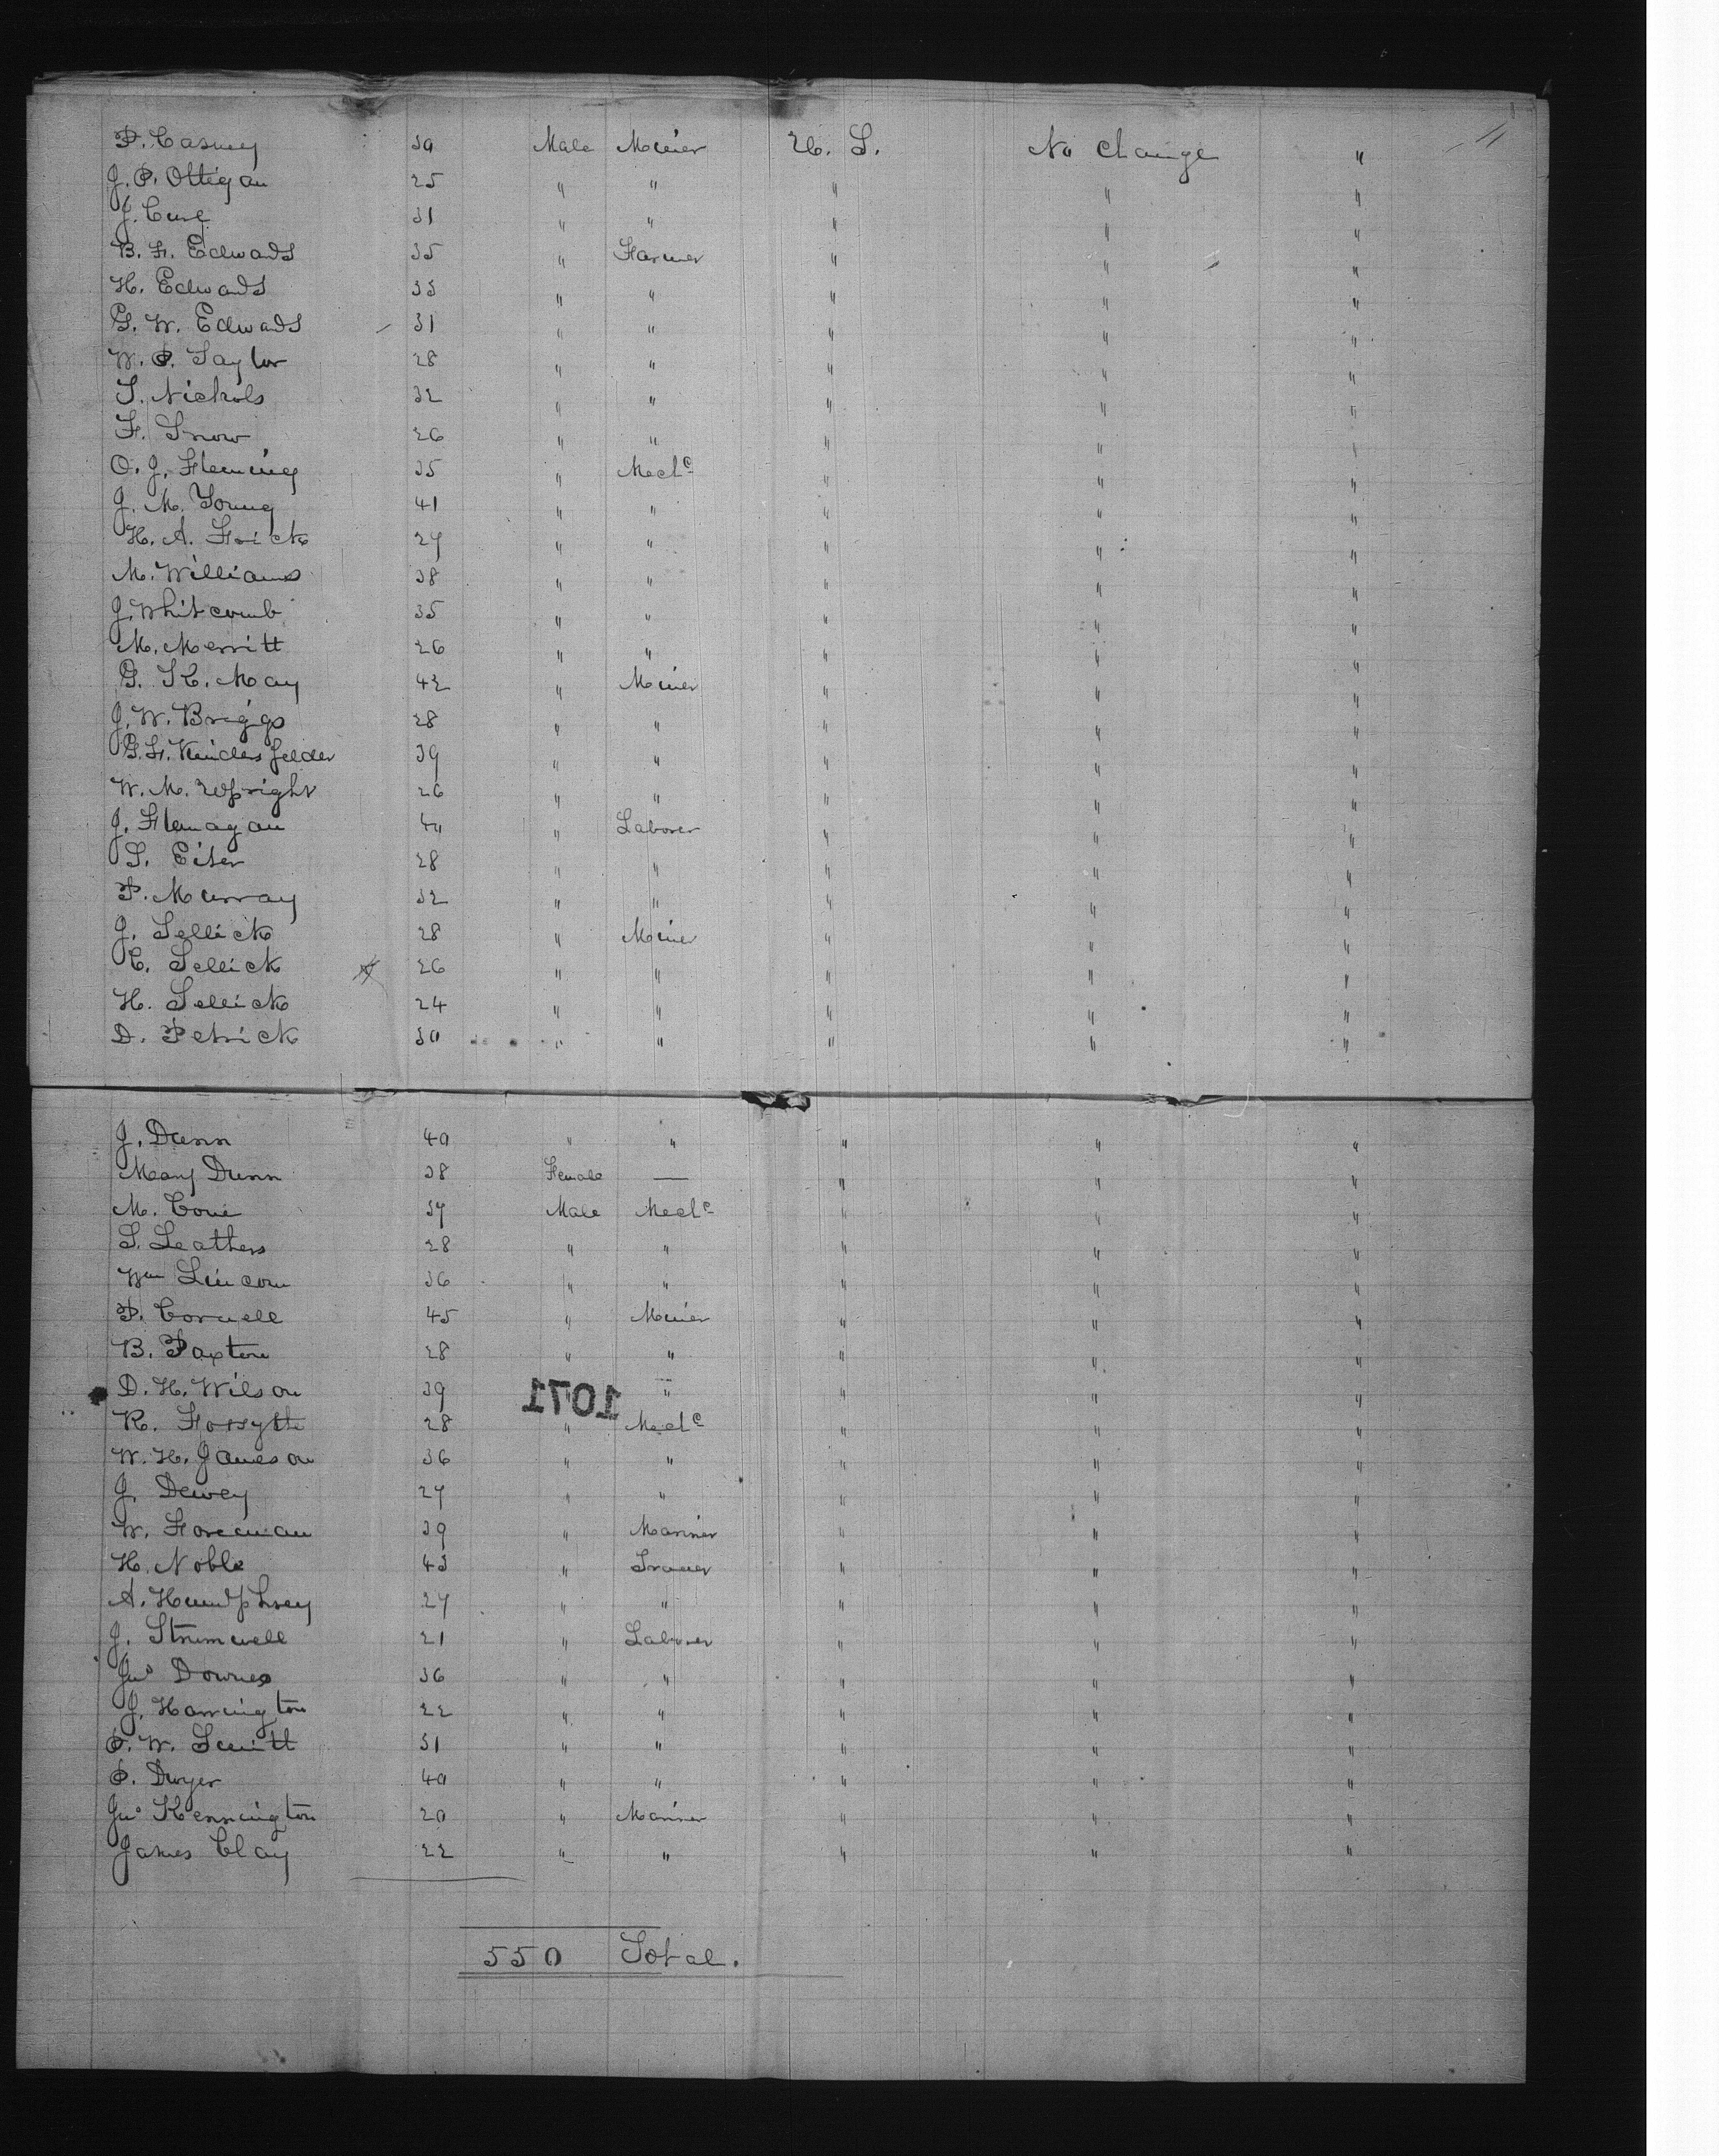 P. Casney 30 Male Miner U. S. No Change "
J. P. Ottigan 25 " " " " "
J. Curl 31 " " " " "
B. F. Edwards 35 " Farmer " " "
H. Edwards 33 " " " " "
G. W. Edwards 31 " " " " "
W. P. Taylor 28 " " " " "
T. Nichols 32 " " " " "
F. Snow 26 " " " " "
O. J. Fleming 35 " Mechc " " "
J. M. Young 41 " " " " "
H. A. Frick 27 " " " " "
M. Williams 38 " " " " "
J. Whitcomb 35 " " " " "
M. Merritt 26 " " " " "
G. K. May 42 " Miner " " "
J. W. Briggs 28 " " " " "
G. F. Kindersfelder 39 " " " " "
W. M. Upright 26 " " " " "
J. Flanagan 40 " Laborer " " "
S. Eiser 28 " " " " "
P. Murray 32 " " " " "
J. Sellick 28 " Miner " " "
C. Sellick 26 " " " " "
H. Sellick 24 " " " " "
D. Petrick 30 " " " " "
J. Dunn 40 " " " " "
Mary Dunn 38 Female — " " "
M. Cone 37 Male Mechc " " "
S. Leathers 28 " " " " "
Wm Lincom 36 " " " " "
P. Cornell 45 " Miner " " "
B. Paxton 28 " " " " "
D. H. Wilson 39 " " " "
1071
R. Forsythe 28 " Mechc " " "
W. H. Jameson 36 " " " " "
J. Dewey 27 " " " " "
W. Foreman 39 " Mariner " " "
H. Noble 43 " " " "
A. Humphrey 27 " " " " "
J. Strumwell 21 " Laborer " " "
Jno Downes 36 " " " " "
J. Harrington 22 " " " " "
P. W. Smith 31 " " " " "
P. Dwyer 40 " " " " "
Jno Kennington 20 " Mariner " " "
James Clay 22 " " " " "
550 Total.